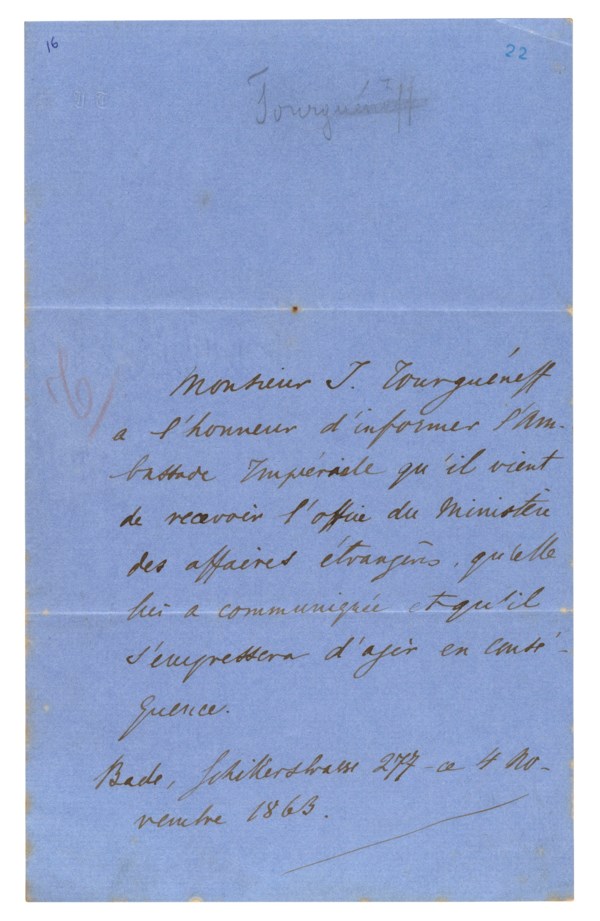 16
22
Tourguéneff
Monsieur J. Tourguéneff
a l'honneur d'informer l'Am-
bassade Impériale qu'il vient
de recevoir l'office du Ministère
des affaires étrangères, qu'elle
lui a communiquée et qu'il
s'empressera d'agir en consé-
quence.
Bade, Schillerstrasse 277 - ce 4 no-
vembre 1863.